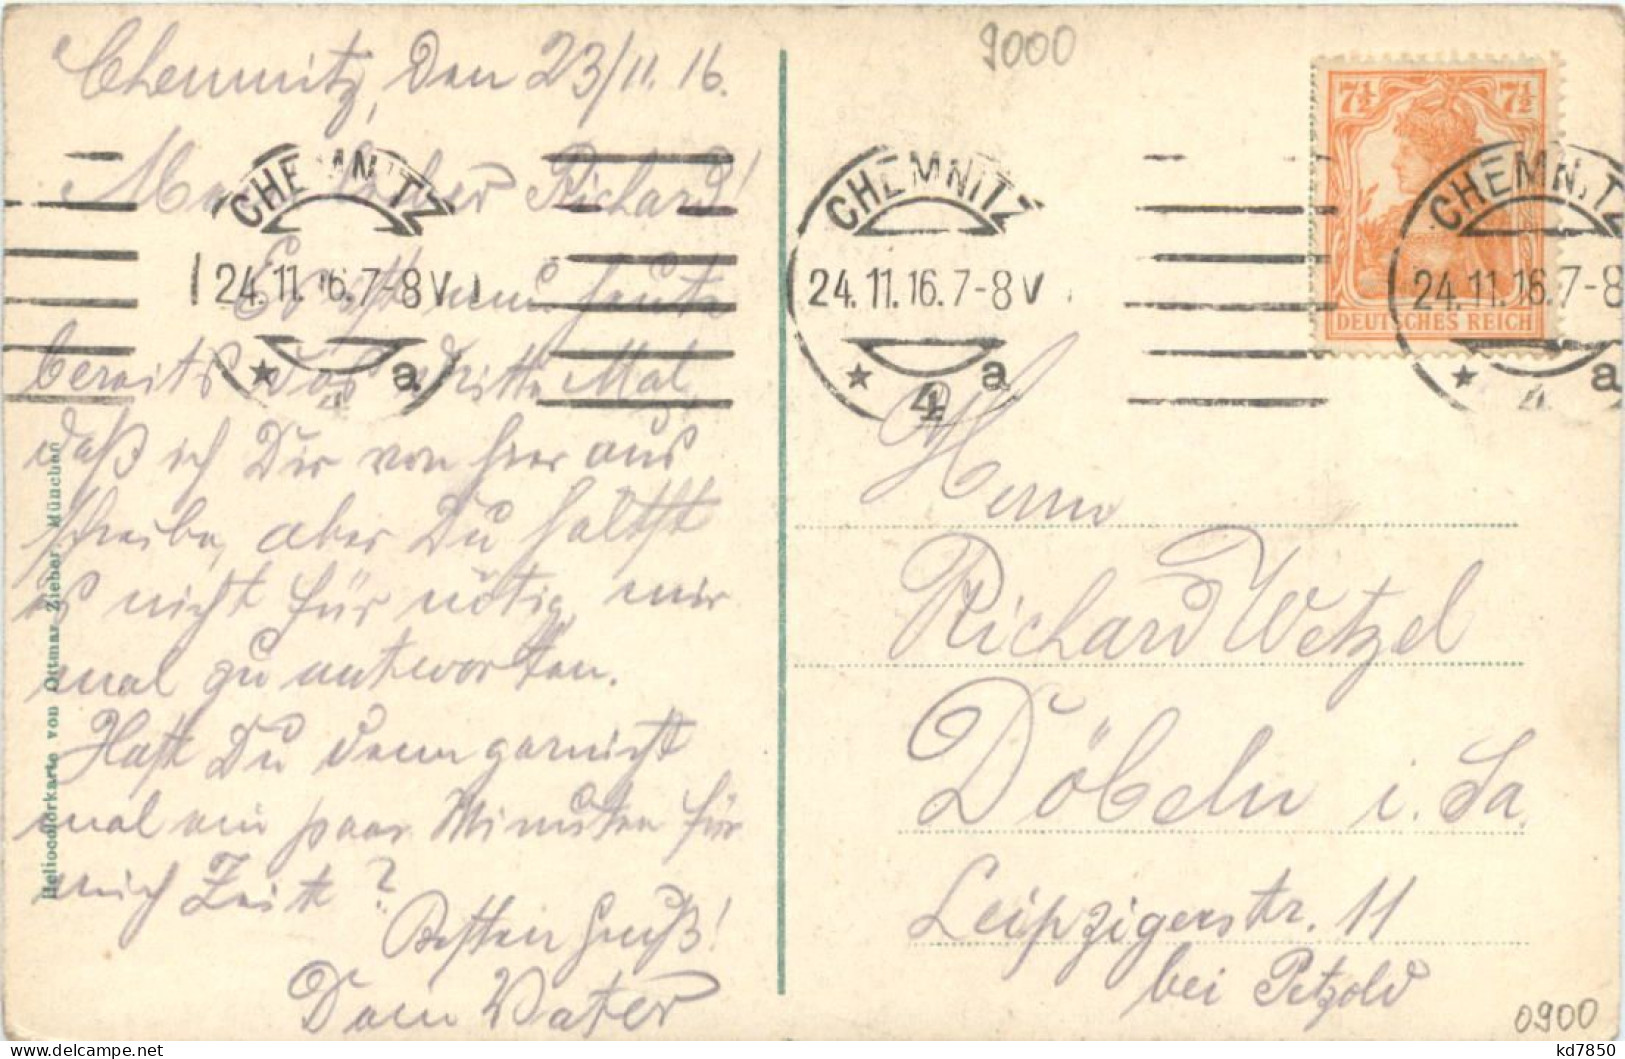 Chemnitz, den 23/11.16.
Mein lieber Richard!
Es ist nun heute
bereits das dritte Mal,
daß ich Dir von hier aus
schreibe, aber Du hältst
es nicht für nötig, mir
mal zu antworten.
Hast Du denn garnicht
mal ein paar Minuten für
mich Zeit?
Besten Gruß!
Dein Vater
CHEMNITZ
24.11.16.7-8V
* 4 a
Heliocolorkarte von Ottmar Zieher München
9000
CHEMNITZ
24.11.16.7-8V
* 4 a
7½ 7½
DEUTSCHES REICH
CHEMNITZ
24.11.16.7-8
* 4 a
Herrn
Richard Wetzel
Döbeln i. Sa.
Leipzigerstr. 11
bei Petzold
0900
kd7850